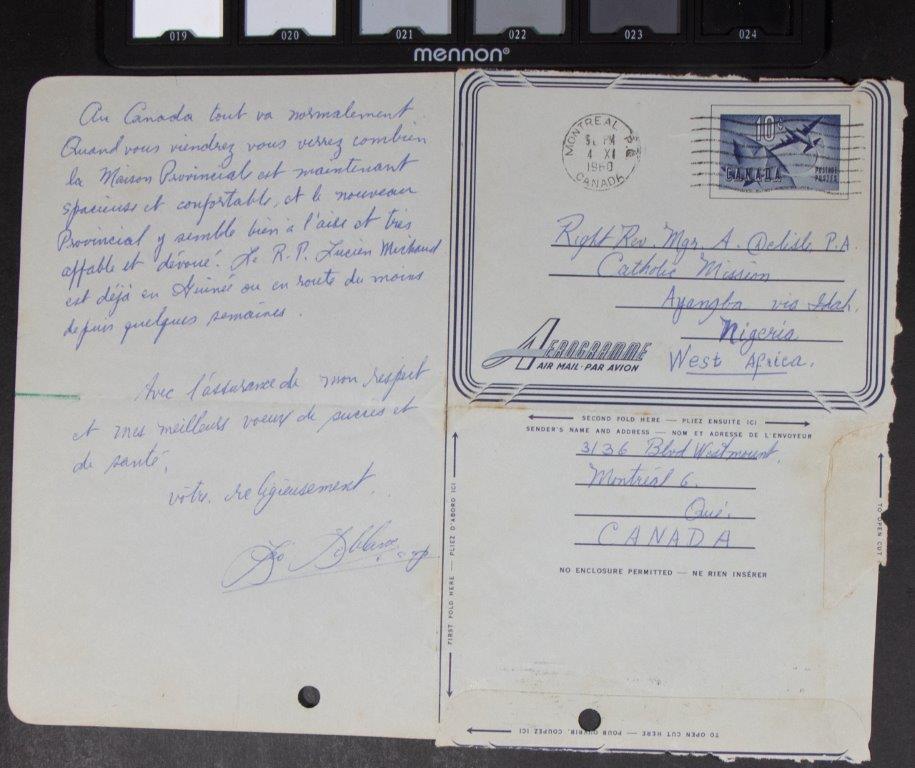 019 020 021 022 023 024
mennon®
Au Canada tout va normalement
Quand vous viendrez vous verrez combien
la Maison Provinciale est maintenant
spacieuse et confortable, et le nouveau
Provincial y semble bien à l'aise et très
affable et dévoué. Le R. P. Lucien Michaud
est déjà en Guinée ou en route du moins
depuis quelques semaines.
Avec l'assurance de mon respect
et mes meilleurs voeux de succès et
de santé,
vôtre religieusement,
Léo
MONTREAL P.Q.
PM
4 XI
1960
CANADA
10¢
CANADA
POSTAGE
POSTES
Right Rev. Mgr. A. Delisle, P.A.
Catholic Mission
Ayangba via Idah,
Nigeria
West Africa.
AEROGRAMME
AIR MAIL · PAR AVION
SECOND FOLD HERE — PLIEZ ENSUITE ICI
SENDER'S NAME AND ADDRESS — NOM ET ADRESSE DE L'ENVOYEUR
3136 Blvd Westmount,
Montréal 6.
Qué.
CANADA
NO ENCLOSURE PERMITTED — NE RIEN INSÉRER
FIRST FOLD HERE — PLIEZ D'ABORD ICI
TO OPEN CUT
TO OPEN CUT HERE — POUR OUVRIR, COUPEZ ICI